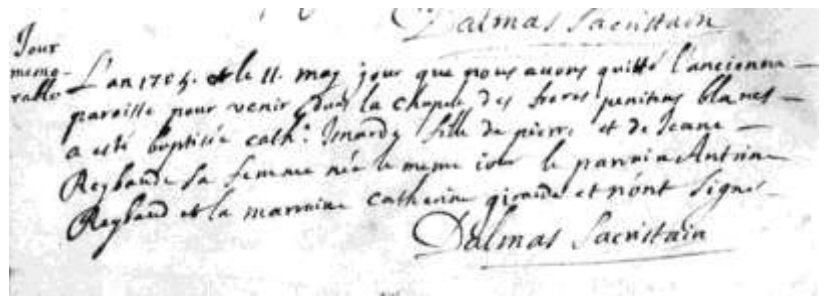 Dalmas Sacristain
Jour
memo-
rable
L'an 1705. et le 11. may jour que nous avons quitté l'ancienne
paroisse pour venir dans la chapele des freres penitens blancs
a esté baptisée cath.e Imarde fille de pierre et de Jeane
Reybaude sa femme née le meme jour le parrain Antoine
Reybaud et la marraine catherine giraude et n'ont signés
Dalmas Sacristain